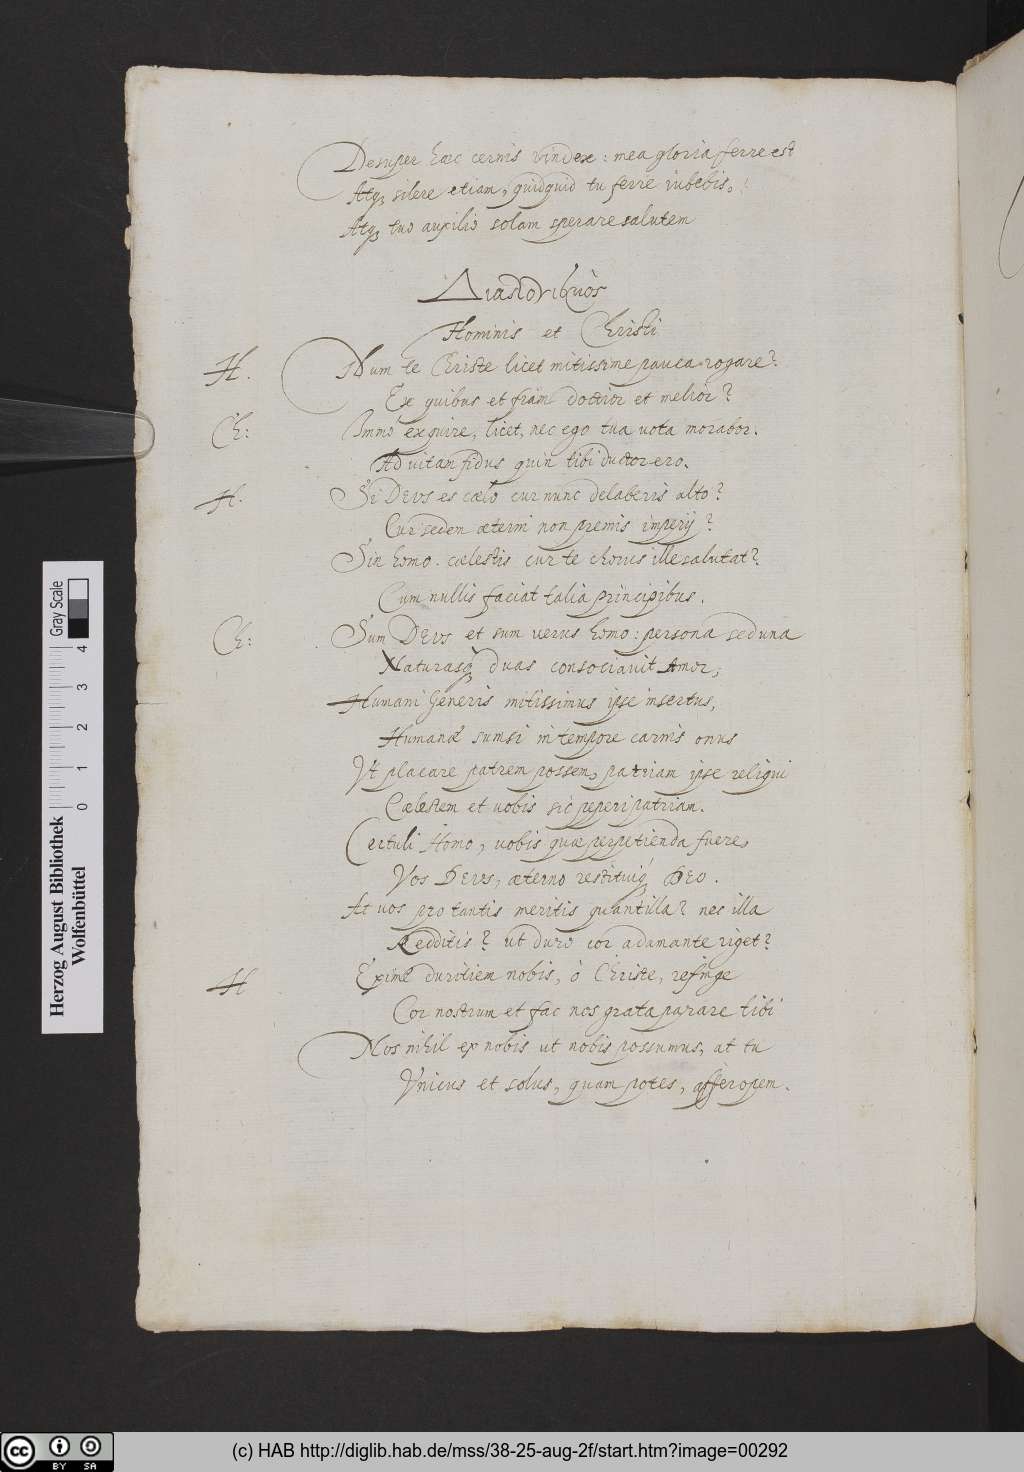 Desuper haec cernis vindex: mea gloria ferre est
Atq; silere etiam, quidquid tu ferre iubebis.
Atq; tuo auxilio solam sperare salutem
Hominis et Christi
H. Num te Christe licet mitissime pauca rogare?
Ex quibus et fiam doctior et melior?
Ch: Immo exquire, licet, nec ego tua uota morabor.
Ad vitam fidus quin tibi ductor ero.
H. Si DEVS es cælo cur nunc delaberis alto?
Cur sedem æterni non premis imperij?
Sin homo. cælestis cur te chorus ille salutat?
Cum nullis faciat talia principibus.
Ch: Sum DEVS et sum verus homo: persona sed una
Naturasq; duas consociauit Amor;
Humani Generis mitissimus ipse insertus,
Humanæ sumsi in tempore carnis onus
Vt placare patrem possem, patriam ipse reliqui
Cælestem et uobis sic peperi patriam.
Certuli Homo, uobis quæ perpetienda fuere,
Vos DEVS, æterno restituiq; DEO.
At uos pro tantis meritis quantilla? nec illa
Redditis? ut duro cor adamante riget?
H Exime duritiem nobis, ò Christe, refinge
Cor nostrum et fac nos grata parare tibi
Nos nihil ex nobis ut nobis possumus, at tu
Vnicus et solus, quam potes, affer opem.
Herzog August Bibliothek
Wolfenbüttel
0 1 2 3 4
Gray Scale
cc BY SA
(c) HAB http://diglib.hab.de/mss/38-25-aug-2f/start.htm?image=00292